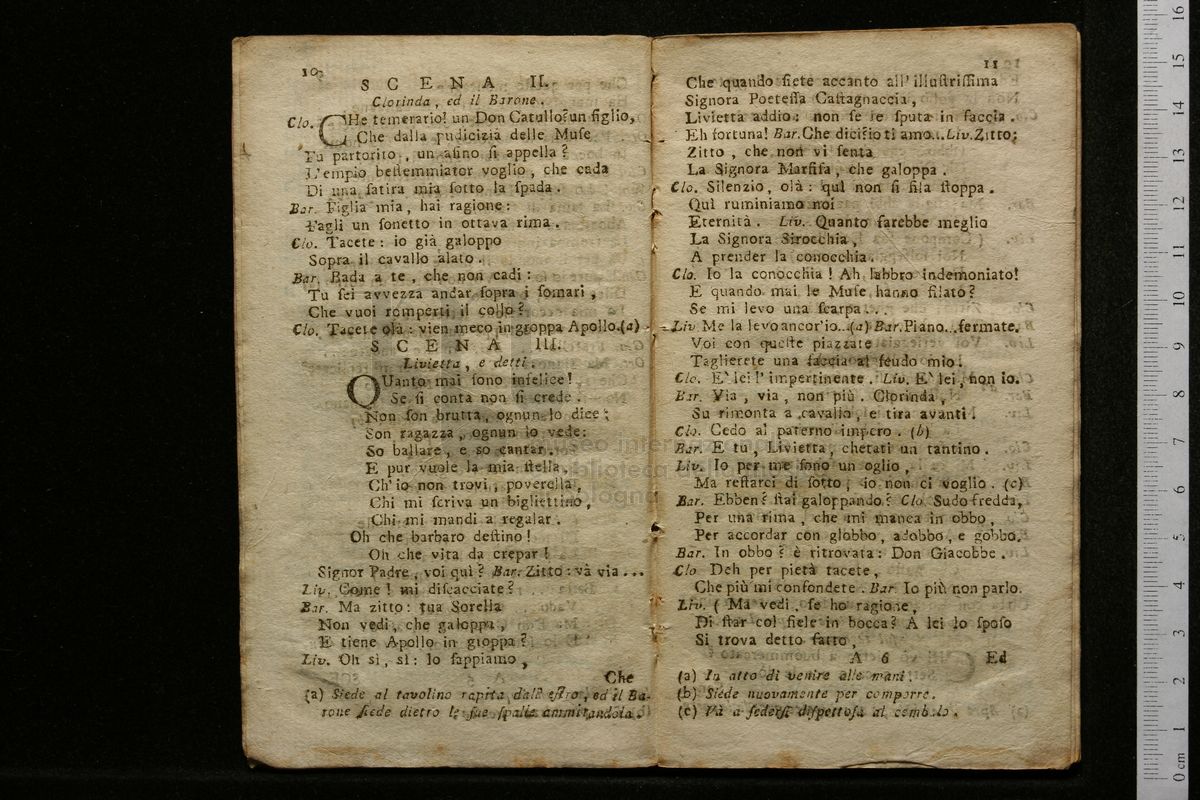 10
SCENA II.
Clorinda, ed il Barone.
Clo. CHe temerario! un Don Catullo? un figlio,
Che dalla pudicizia delle Muſe
Tu partorito, un aſino ſi appella?
L'empio beſtemmiator voglio, che cada
Di una ſatira mia ſotto la ſpada.
Bar. Figlia mia, hai ragione:
Fagli un ſonetto in ottava rima.
Clo. Tacete: io già galoppo
Sopra il cavallo alato.
Bar. Bada a te, che non cadi:
Tu ſei avvezza andar ſopra i ſomari,
Che vuoi romperti il collo?
Clo. Tacete olà: vien meco in groppa Apollo.(a)
SCENA III.
Livietta, e detti.
QUanto mai ſono infelice!
Se ſi conta non ſi crede.
Non ſon brutta, ognun lo dice;
Son ragazza, ognun lo vede:
So ballare, e ſo cantar.
E pur vuole la mia ſtella,
Ch'io non trovi, poverella,
Chi mi ſcriva un bigliettino,
Chi mi mandi a regalar.
Oh che barbaro deſtino!
Oh che vita da crepar!
Signor Padre, voi quì? Bar. Zitto: và via...
Liv. Come! mi diſcacciate?
Bar. Ma zitto: tua Sorella
Non vedi, che galoppa,
E tiene Apollo in groppa?
Liv. Oh sì, sì: lo ſappiamo,
Che
(a) Siede al tavolino rapita dall' eſtro, ed il Ba-
rone ſiede dietro le ſue ſpalle ammirandola.
11
Che quando ſiete accanto all' illuſtriſſima
Signora Poeteſſa Caſtagnaccia,
Livietta addio: non ſe le ſputa in faccia.
Eh fortuna! Bar. Che dici? io ti amo... Liv. Zitto;
Zitto, che non vi ſenta
La Signora Marfiſa, che galoppa.
Clo. Silenzio, olà: quì non ſi fila ſtoppa.
Quì ruminiamo noi
Eternità. Liv. Quanto ſarebbe meglio
La Signora Sirocchia,
A prender la conocchia.
Clo. Io la conocchia! Ah labbro indemoniato!
E quando mai le Muſe hanno filato?
Se mi levo una ſcarpa...
Liv. Me la levo ancor'io...(a) Bar. Piano... fermate.
Voi con queſte piazzate
Taglierete una faccia al feudo mio!
Clo. E' lei l'impertinente. Liv. E' lei, non io.
Bar. Via, via, non più. Clorinda,
Su rimonta a cavallo, e tira avanti!
Clo. Cedo al paterno impero. (b)
Bar. E tu, Livietta, chetati un tantino.
Liv. Io per me ſono un oglio,
Ma reſtarci di ſotto, io non ci voglio. (c)
Bar. Ebben? ſtai galoppando? Clo. Sudo fredda,
Per una rima, che mi manca in obbo,
Per accordar con globbo, adobbo, e gobbo.
Bar. In obbo? è ritrovata: Don Giacobbe.
Clo. Deh per pietà tacete,
Che più mi confondete. Bar. Io più non parlo.
Liv. (Ma vedi, ſe ho ragione,
Di ſtar col fiele in bocca? A lei lo ſpoſo
Si trova detto fatto,
A 6 Ed
(a) In atto di venire alle mani.
(b) Siede nuovamente per comporre.
(c) Và a ſederſi diſpettoſa al cembalo.
museo internazionale
biblioteca della musica
bologna
0 cm 1 2 3 4 5 6 7 8 9 10 11 12 13 14 15 16